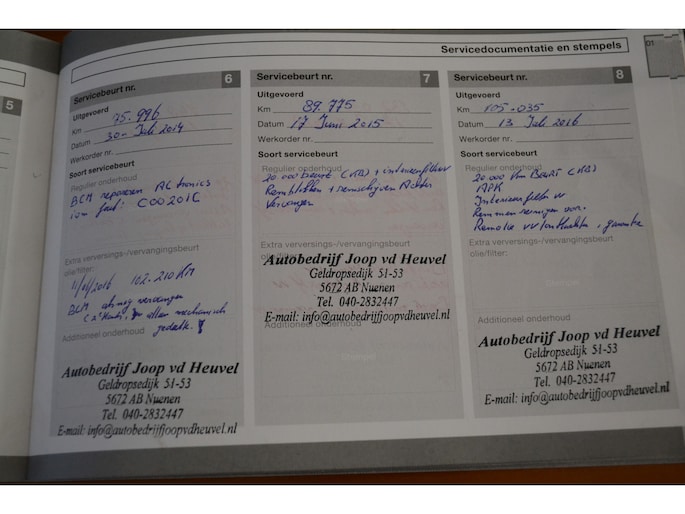 Servicedocumentatie en stempels
01
5
Servicebeurt nr. 6
Uitgevoerd
Km 75.996
Datum 30 - Juli 2014
Werkorder nr.
Soort servicebeurt
Regulier onderhoud
BCM repareren ACtronics
ivm fout: C0020IC
Extra verversings-/vervangingsbeurt
olie/filter:
2016 102.210 KM
BCM vervangen
Additioneel onderhoud
Autobedrijf Joop vd Heuvel
Geldropsedijk 51-53
5672 AB Nuenen
Tel. 040-2832447
E-mail: info@autobedrijfjoopvdheuvel.nl
Servicebeurt nr. 7
Uitgevoerd
Km 89.775
Datum 17 Juni 2015
Werkorder nr.
Soort servicebeurt
Regulier onderhoud
20.000 beurt (KB) + interieurfilter
Remblokken + remschijven Achter
Vervangen
Extra verversings-/vervangingsbeurt
olie/filter:
Autobedrijf Joop vd Heuvel
Geldropsedijk 51-53
5672 AB Nuenen
Tel. 040-2832447
E-mail: info@autobedrijfjoopvdheuvel.nl
Additioneel onderhoud
Servicebeurt nr. 8
Uitgevoerd
Km 105-035
Datum 13 Juli 2016
Werkorder nr.
Soort servicebeurt
Regulier onderhoud
20.000 Km Beurt (KB)
APK
Interieurfilter vv
Remmen reinigen
Extra verversings-/vervangingsbeurt
olie/filter:
Additioneel onderhoud
Autobedrijf Joop vd Heuvel
Geldropsedijk 51-53
5672 AB Nuenen
Tel. 040-2832447
E-mail: info@autobedrijfjoopvdheuvel.nl